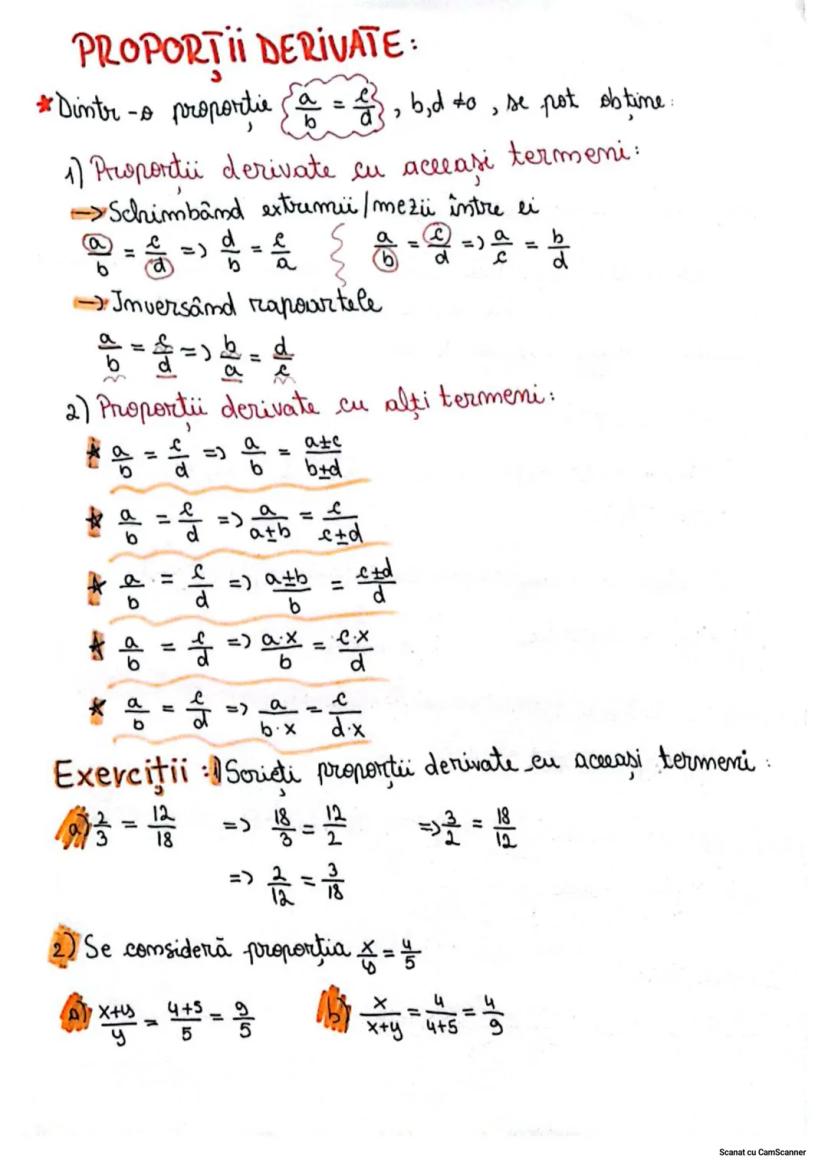 PROPORȚII DERIVATE:
* Dintr-o proporție a/b = c/d, b,d ≠0, se pot obține:
1) Proporții derivate cu aceeași termeni:
→ Schimbând extrumii/mezii între ei
a/b = c/d => d/b = c/a a/b = c/d => a/c = b/d
→ Inversând rapoartele
a/b = c/d => b/a = d/c
2) Proporții derivate cu alți termeni:
* a/b = c/d => a/b = a±c/b±d
* a/b = c/d => a/a±b = c/c±d
* a/b = c/d => a±b/b = c±d/d
* a/b = c/d => a·x/b = c·x/d
* a/b = c/d => a/b·x = c/d·x
Exerciții: 1) Scrieți proporții derivate cu aceeași termeni:
a) 2/3 = 12/18 => 18/3 = 12/2 => 3/2 = 18/12
=> 2/12 = 3/18
2) Se consideră proporția x/y = 4/5
a) x+y/y = 4+5/5 = 9/5 b) x/x+y = 4/4+5 = 4/9
Scanat cu CamScanner